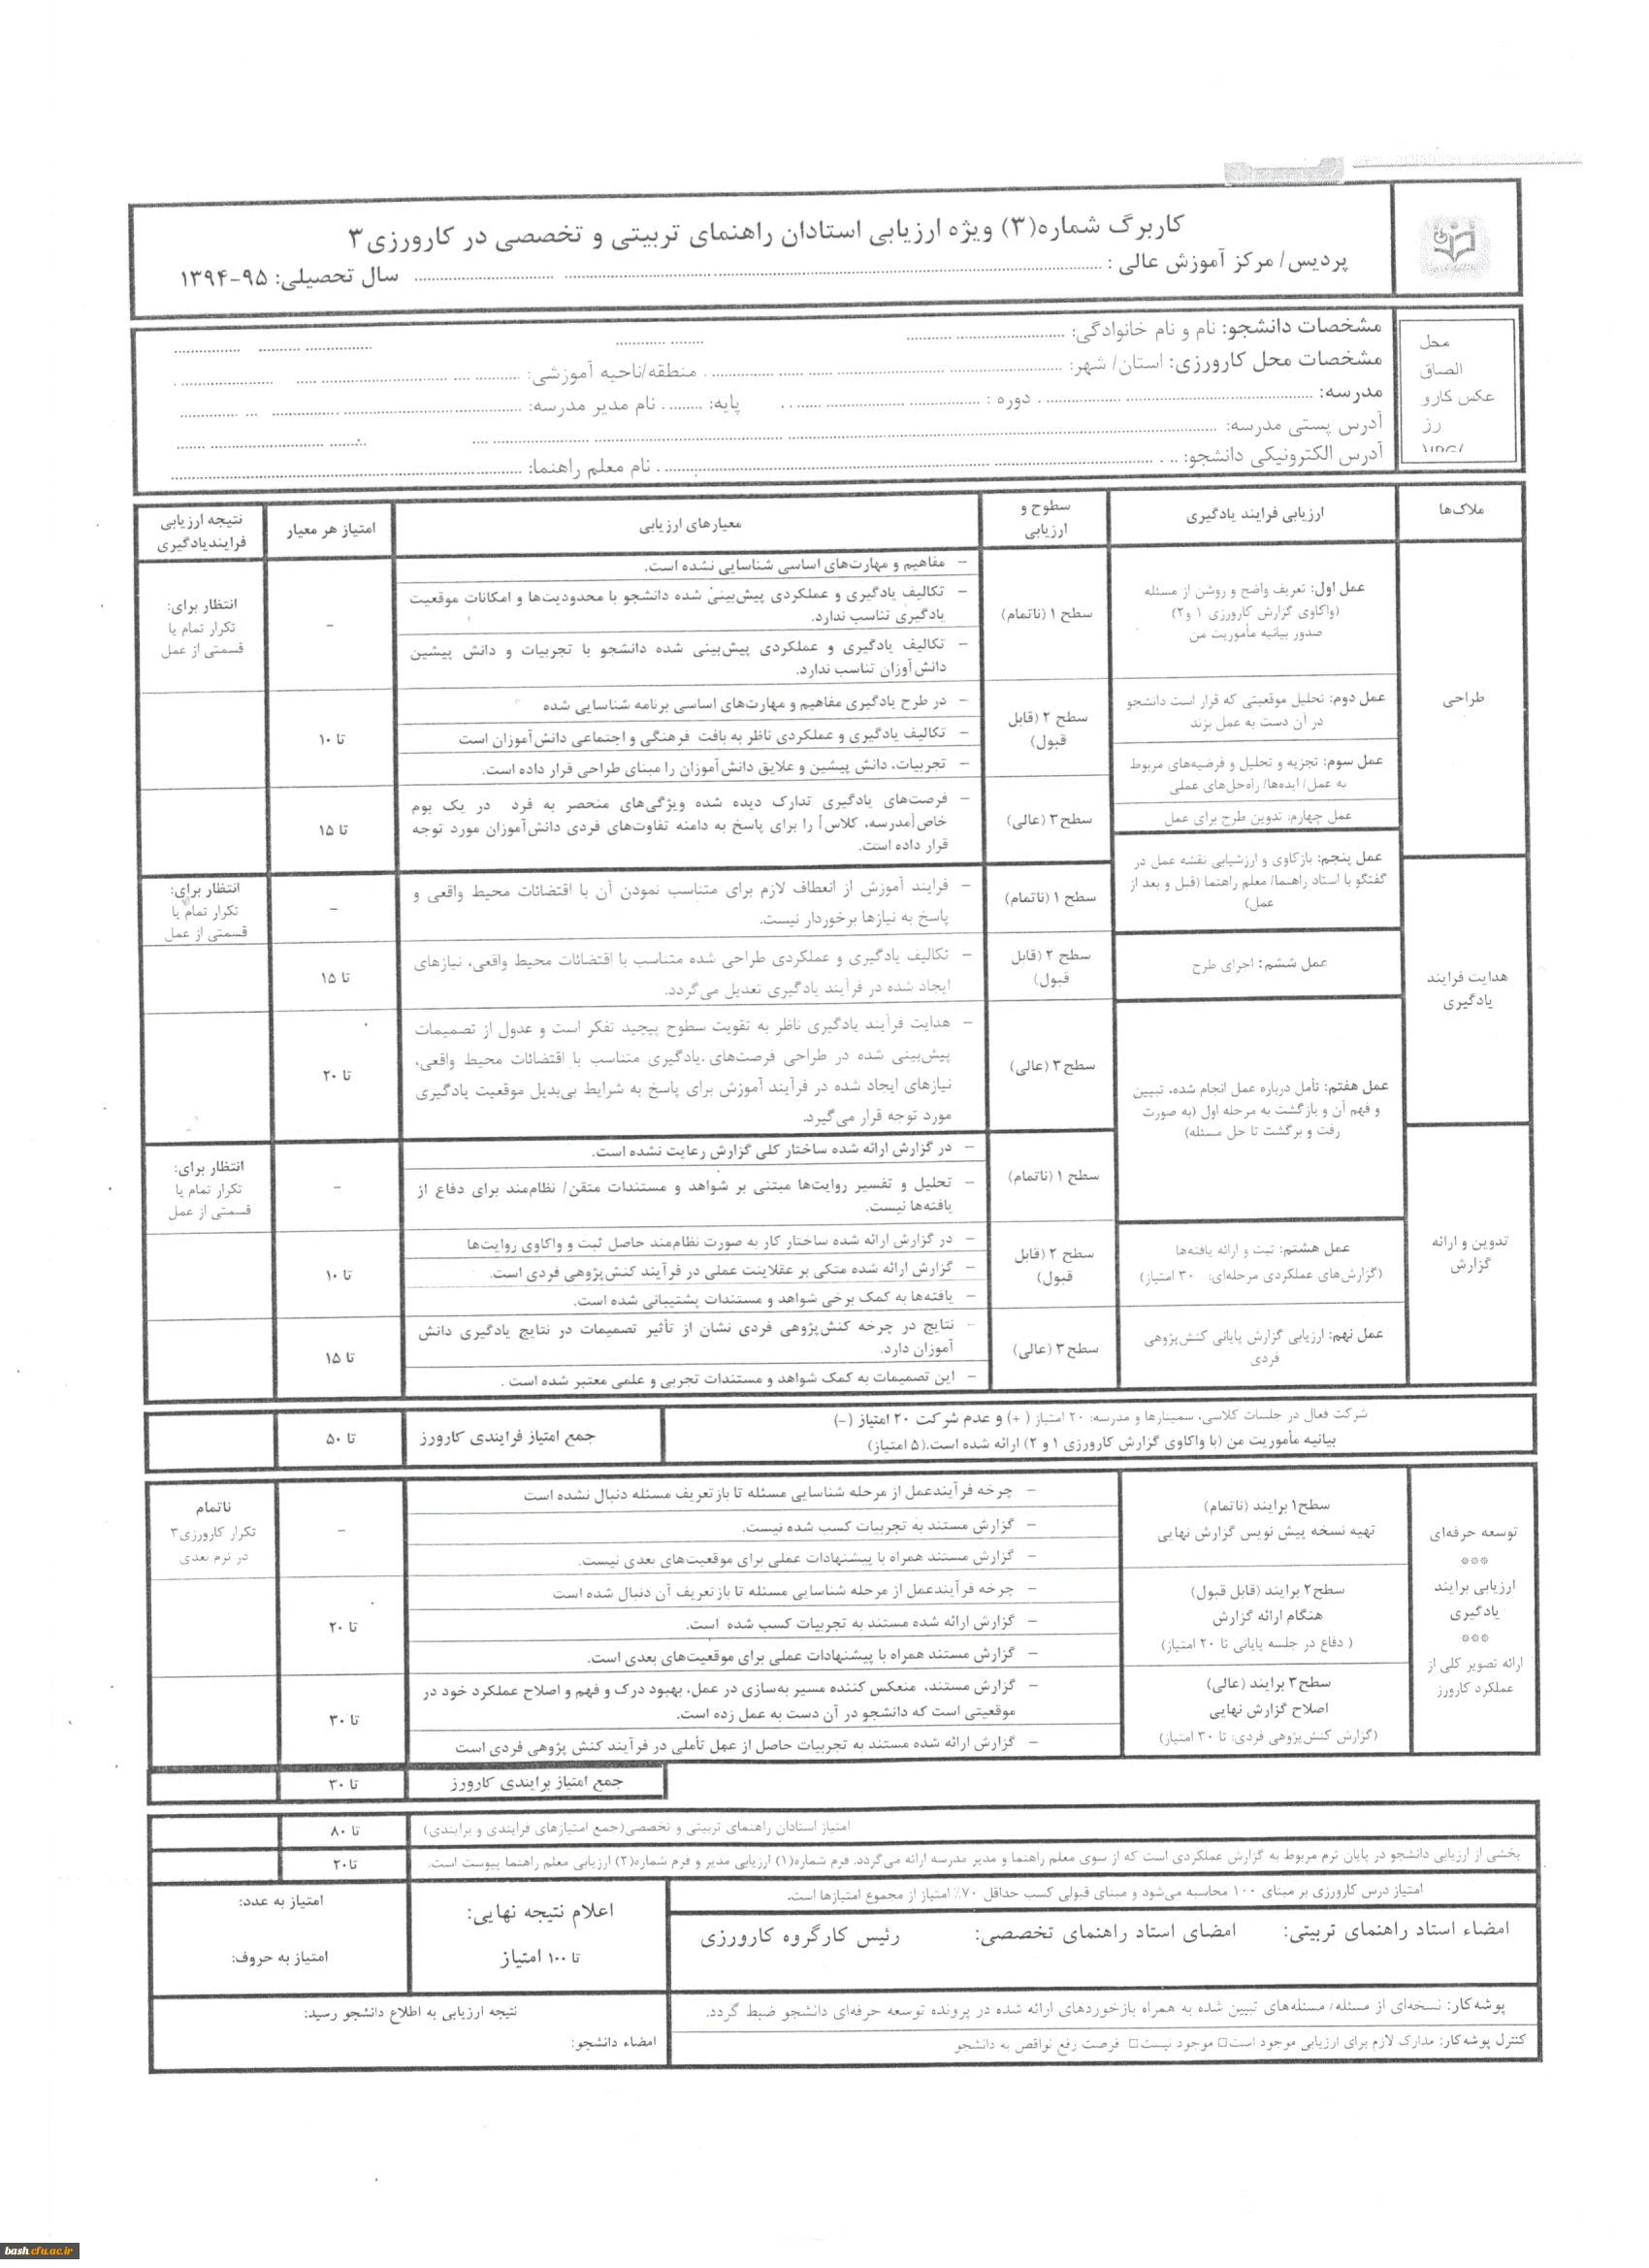 کاربرگ شماره(۳) ویژه ارزیابی استادان راهنمای تربیتی و تخصصی در کارورزی ۳
پردیس/ مرکز آموزش عالی :
سال تحصیلی: ۹۵-۱۳۹۴
محل
الصاق
عکس کارو
رز
مشخصات دانشجو: نام و نام خانوادگی:
مشخصات محل کارورزی: استان/ شهر: منطقه/ناحیه آموزشی:
مدرسه: دوره : پایه: نام مدیر مدرسه:
آدرس پستی مدرسه:
آدرس الکترونیکی دانشجو: نام معلم راهنما:
ملاک‌ها
ارزیابی فرایند یادگیری
سطوح و
ارزیابی
معیارهای ارزیابی
امتیاز هر معیار
نتیجه ارزیابی
فرایندیادگیری
طراحی
عمل اول: تعریف واضح و روشن از مسئله
(واکاوی گزارش کارورزی ۱ و۲)
صدور بیانیه مأموریت من
عمل دوم: تحلیل موقعیتی که قرار است دانشجو
در آن دست به عمل بزند
عمل سوم: تجزیه و تحلیل و فرضیه‌های مربوط
به عمل/ ایده‌ها/ راه‌حل‌های عملی
عمل چهارم: تدوین طرح برای عمل
سطح ۱ (ناتمام)
- مفاهیم و مهارت‌های اساسی شناسایی نشده است.
- تکالیف یادگیری و عملکردی پیش‌بینی شده دانشجو با محدودیت‌ها و امکانات موقعیت
یادگیری تناسب ندارد.
- تکالیف یادگیری و عملکردی پیش‌بینی شده دانشجو با تجربیات و دانش پیشین
دانش‌آوزان تناسب ندارد.
–
انتظار برای:
تکرار تمام یا
قسمتی از عمل
سطح ۲ (قابل
قبول)
- در طرح یادگیری مفاهیم و مهارت‌های اساسی برنامه شناسایی شده
- تکالیف یادگیری و عملکردی ناظر به بافت فرهنگی و اجتماعی دانش‌آموزان است
- تجربیات، دانش پیشین و علایق دانش‌آموزان را مبنای طراحی قرار داده است.
تا ۱۰
سطح ۳ (عالی)
- فرصت‌های یادگیری تدارک دیده شده ویژگی‌های منحصر به فرد در یک بوم
خاص[مدرسه، کلاس] را برای پاسخ به دامنه تفاوت‌های فردی دانش‌آموزان مورد توجه
قرار داده است.
تا ۱۵
هدایت فرایند
یادگیری
عمل پنجم: بازکاوی و ارزشیابی نقشه عمل در
گفتگو با استاد راهنما/ معلم راهنما (قبل و بعد از
عمل)
عمل ششم: اجرای طرح
عمل هفتم: تأمل درباره عمل انجام شده، تبیین
و فهم آن و بازگشت به مرحله اول (به صورت
رفت و برگشت تا حل مسئله)
سطح ۱ (ناتمام)
- فرایند آموزش از انعطاف لازم برای متناسب نمودن آن با اقتضائات محیط واقعی و
پاسخ به نیازها برخوردار نیست.
–
انتظار برای:
تکرار تمام یا
قسمتی از عمل
سطح ۲ (قابل
قبول)
- تکالیف یادگیری و عملکردی طراحی شده متناسب با اقتضائات محیط واقعی، نیازهای
ایجاد شده در فرآیند یادگیری تعدیل می‌گردد.
تا ۱۵
سطح ۳ (عالی)
- هدایت فرآیند یادگیری ناظر به تقویت سطوح پیچید تفکر است و عدول از تصمیمات
پیش‌بینی شده در طراحی فرصت‌های یادگیری متناسب با اقتضائات محیط واقعی،
نیازهای ایجاد شده در فرآیند آموزش برای پاسخ به شرایط بی‌بدیل موقعیت یادگیری
مورد توجه قرار می‌گیرد.
تا ۲۰
تدوین و ارائه
گزارش
عمل هشتم: ثبت و ارائه یافته‌ها
(گزارش‌های عملکردی مرحله‌ای: ۳۰ امتیاز)
عمل نهم: ارزیابی گزارش پایانی کنش‌پژوهی
فردی
سطح ۱ (ناتمام)
- در گزارش ارائه شده ساختار کلی گزارش رعایت نشده است.
- تحلیل و تفسیر روایت‌ها مبتنی بر شواهد و مستندات متقن/ نظام‌مند برای دفاع از
یافته‌ها نیست.
–
انتظار برای:
تکرار تمام یا
قسمتی از عمل
سطح ۲ (قابل
قبول)
- در گزارش ارائه شده ساختار کار به صورت نظام‌مند حاصل ثبت و واکاوی روایت‌ها
- گزارش ارائه شده متکی بر عقلاینت عملی در فرآیند کنش‌پژوهی فردی است.
- یافته‌ها به کمک برخی شواهد و مستندات پشتیبانی شده است.
تا ۱۰
سطح ۳ (عالی)
- نتایج در چرخه کنش‌پژوهی فردی نشان از تأثیر تصمیمات در نتایج یادگیری دانش
آموزان دارد.
- این تصمیمات به کمک شواهد و مستندات تجربی و علمی معتبر شده است .
تا ۱۵
شرکت فعال در جلسات کلاسی، سمینارها و مدرسه: ۲۰ امتیاز (+) و عدم شرکت ۲۰ امتیاز (-)
بیانیه مأموریت من (با واکاوی گزارش کارورزی ۱ و ۲) ارائه شده است.(۵ امتیاز)
جمع امتیاز فرایندی کارورز
تا ۵۰
توسعه حرفه‌ای
***
ارزیابی برایند
یادگیری
***
ارائه تصویر کلی از
عملکرد کارورز
سطح۱ برایند (ناتمام)
تهیه نسخه پیش نویس گزارش نهایی
- چرخه فرآیندعمل از مرحله شناسایی مسئله تا باز تعریف مسئله دنبال نشده است
- گزارش مستند به تجربیات کسب شده نیست.
- گزارش مستند همراه با پیشنهادات عملی برای موقعیت‌های بعدی نیست.
–
ناتمام
تکرار کارورزی۳
در ترم بعدی
سطح۲ برایند (قابل قبول)
هنگام ارائه گزارش
( دفاع در جلسه پایانی تا ۲۰ امتیاز)
- چرخه فرآیندعمل از مرحله شناسایی مسئله تا باز تعریف آن دنبال شده است
- گزارش ارائه شده مستند به تجربیات کسب شده است.
- گزارش مستند همراه با پیشنهادات عملی برای موقعیت‌های بعدی است.
تا ۲۰
سطح۳ برایند (عالی)
اصلاح گزارش نهایی
(گزارش کنش‌پژوهی فردی: تا ۳۰ امتیاز)
- گزارش مستند، منعکس کننده مسیر به‌سازی در عمل، بهبود درک و فهم و اصلاح عملکرد خود در
موقعیتی است که دانشجو در آن دست به عمل زده است.
- گزارش ارائه شده مستند به تجربیات حاصل از عمل تأملی در فرآیند کنش پژوهی فردی است
تا ۳۰
جمع امتیاز برایندی کارورز
تا ۳۰
امتیاز استادان راهنمای تربیتی و تخصصی(جمع امتیازهای فرایندی و برایندی)
تا ۸۰
بخشی از ارزیابی دانشجو در پایان ترم مربوط به گزارش عملکردی است که از سوی معلم راهنما و مدیر مدرسه ارائه می‌گردد. فرم شماره(۱) ارزیابی مدیر و فرم شماره(۲) ارزیابی معلم راهنما پیوست است.
تا۲۰
امتیاز درس کارورزی بر مبنای ۱۰۰ محاسبه می‌شود و مبنای قبولی کسب حداقل ۷۰٪ امتیاز از مجموع امتیازها است.
امضاء استاد راهنمای تربیتی: امضای استاد راهنمای تخصصی: رئیس کارگروه کارورزی
اعلام نتیجه نهایی:
تا ۱۰۰ امتیاز
امتیاز به عدد:
امتیاز به حروف:
پوشه‌کار: نسخه‌ای از مسئله/ مسئله‌های تبیین شده به همراه بازخوردهای ارائه شده در پرونده توسعه حرفه‌ای دانشجو ضبط گردد.
کنترل پوشه‌کار: مدارک لازم برای ارزیابی موجود است□ موجود نیست□ فرصت رفع نواقص به دانشجو
نتیجه ارزیابی به اطلاع دانشجو رسید:
امضاء دانشجو:
bash.cfu.ac.ir